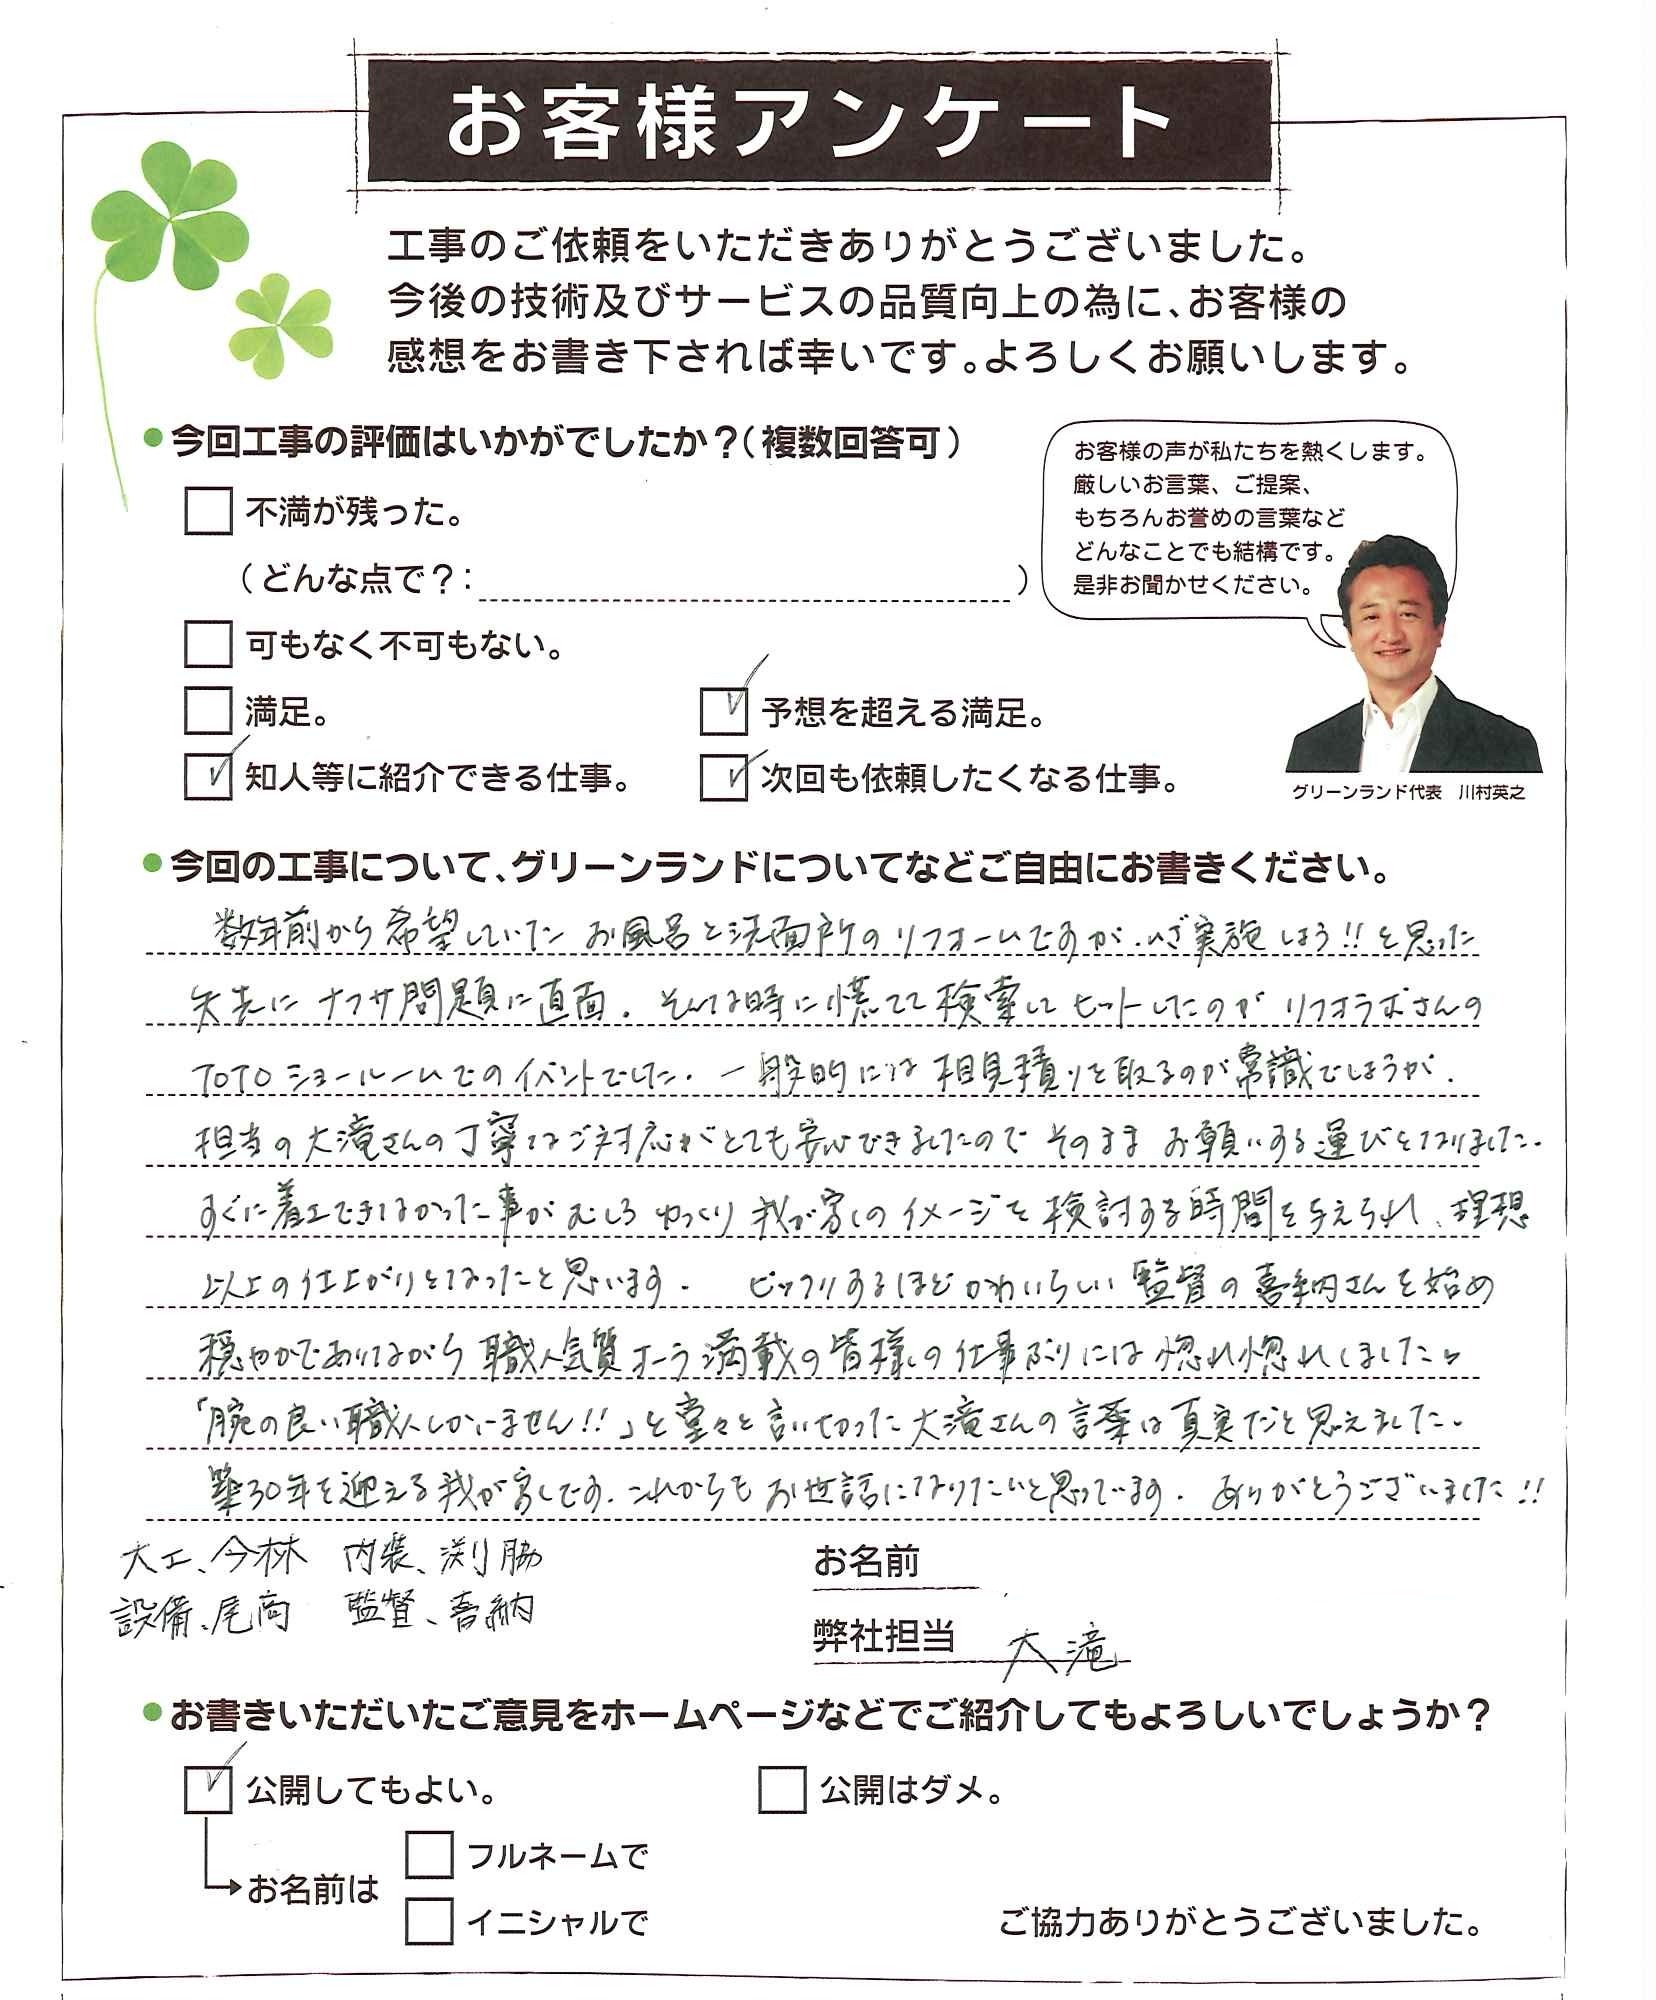 お客様アンケート
工事のご依頼をいただきありがとうございました。
今後の技術及びサービスの品質向上の為に、お客様の
感想をお書き下されば幸いです。よろしくお願いします。
●今回工事の評価はいかがでしたか？（複数回答可）
お客様の声が私たちを熱くします。
厳しいお言葉、ご提案、
もちろんお誉めの言葉など
どんなことでも結構です。
是非お聞かせください。
不満が残った。
（どんな点で？：　）
可もなく不可もない。
満足。
✓予想を超える満足。
✓知人等に紹介できる仕事。
✓次回も依頼したくなる仕事。
グリーンランド代表　川村英之
●今回の工事について、グリーンランドについてなどご自由にお書きください。
数年前から希望していたお風呂と洗面所のリフォームですが、いざ実施しよう!!と思った
矢先にナフサ問題に直面。そんな時に慌てて検索してヒットしたのがリフォラボさんの
TOTOショールームでのイベントでした。一般的には相見積りを取るのが常識でしょうが、
担当の大滝さんの丁寧なご対応がとても安心できましたのでそのままお願いする運びとなりました。
すぐに着工できなかった事がむしろゆっくり我が家のイメージを検討する時間を与えられ、理想
以上の仕上がりとなったと思います。ビックリするほどかわいらしい監督の喜納さんを始め
穏やかでありながら職人気質オーラ満載の皆様の仕事ぶりには惚れ惚れしました。
「腕の良い職人しかいません!!」と堂々と言い切った大滝さんの言葉は真実だと思えました。
築30年を迎える我が家です。これからもお世話になりたいと思っています。ありがとうございました!!
大工、今林　内装、渕脇
設備、尾高　監督、喜納
お名前
弊社担当　大滝
●お書きいただいたご意見をホームページなどでご紹介してもよろしいでしょうか？
✓公開してもよい。
公開はダメ。
お名前は
フルネームで
イニシャルで
ご協力ありがとうございました。